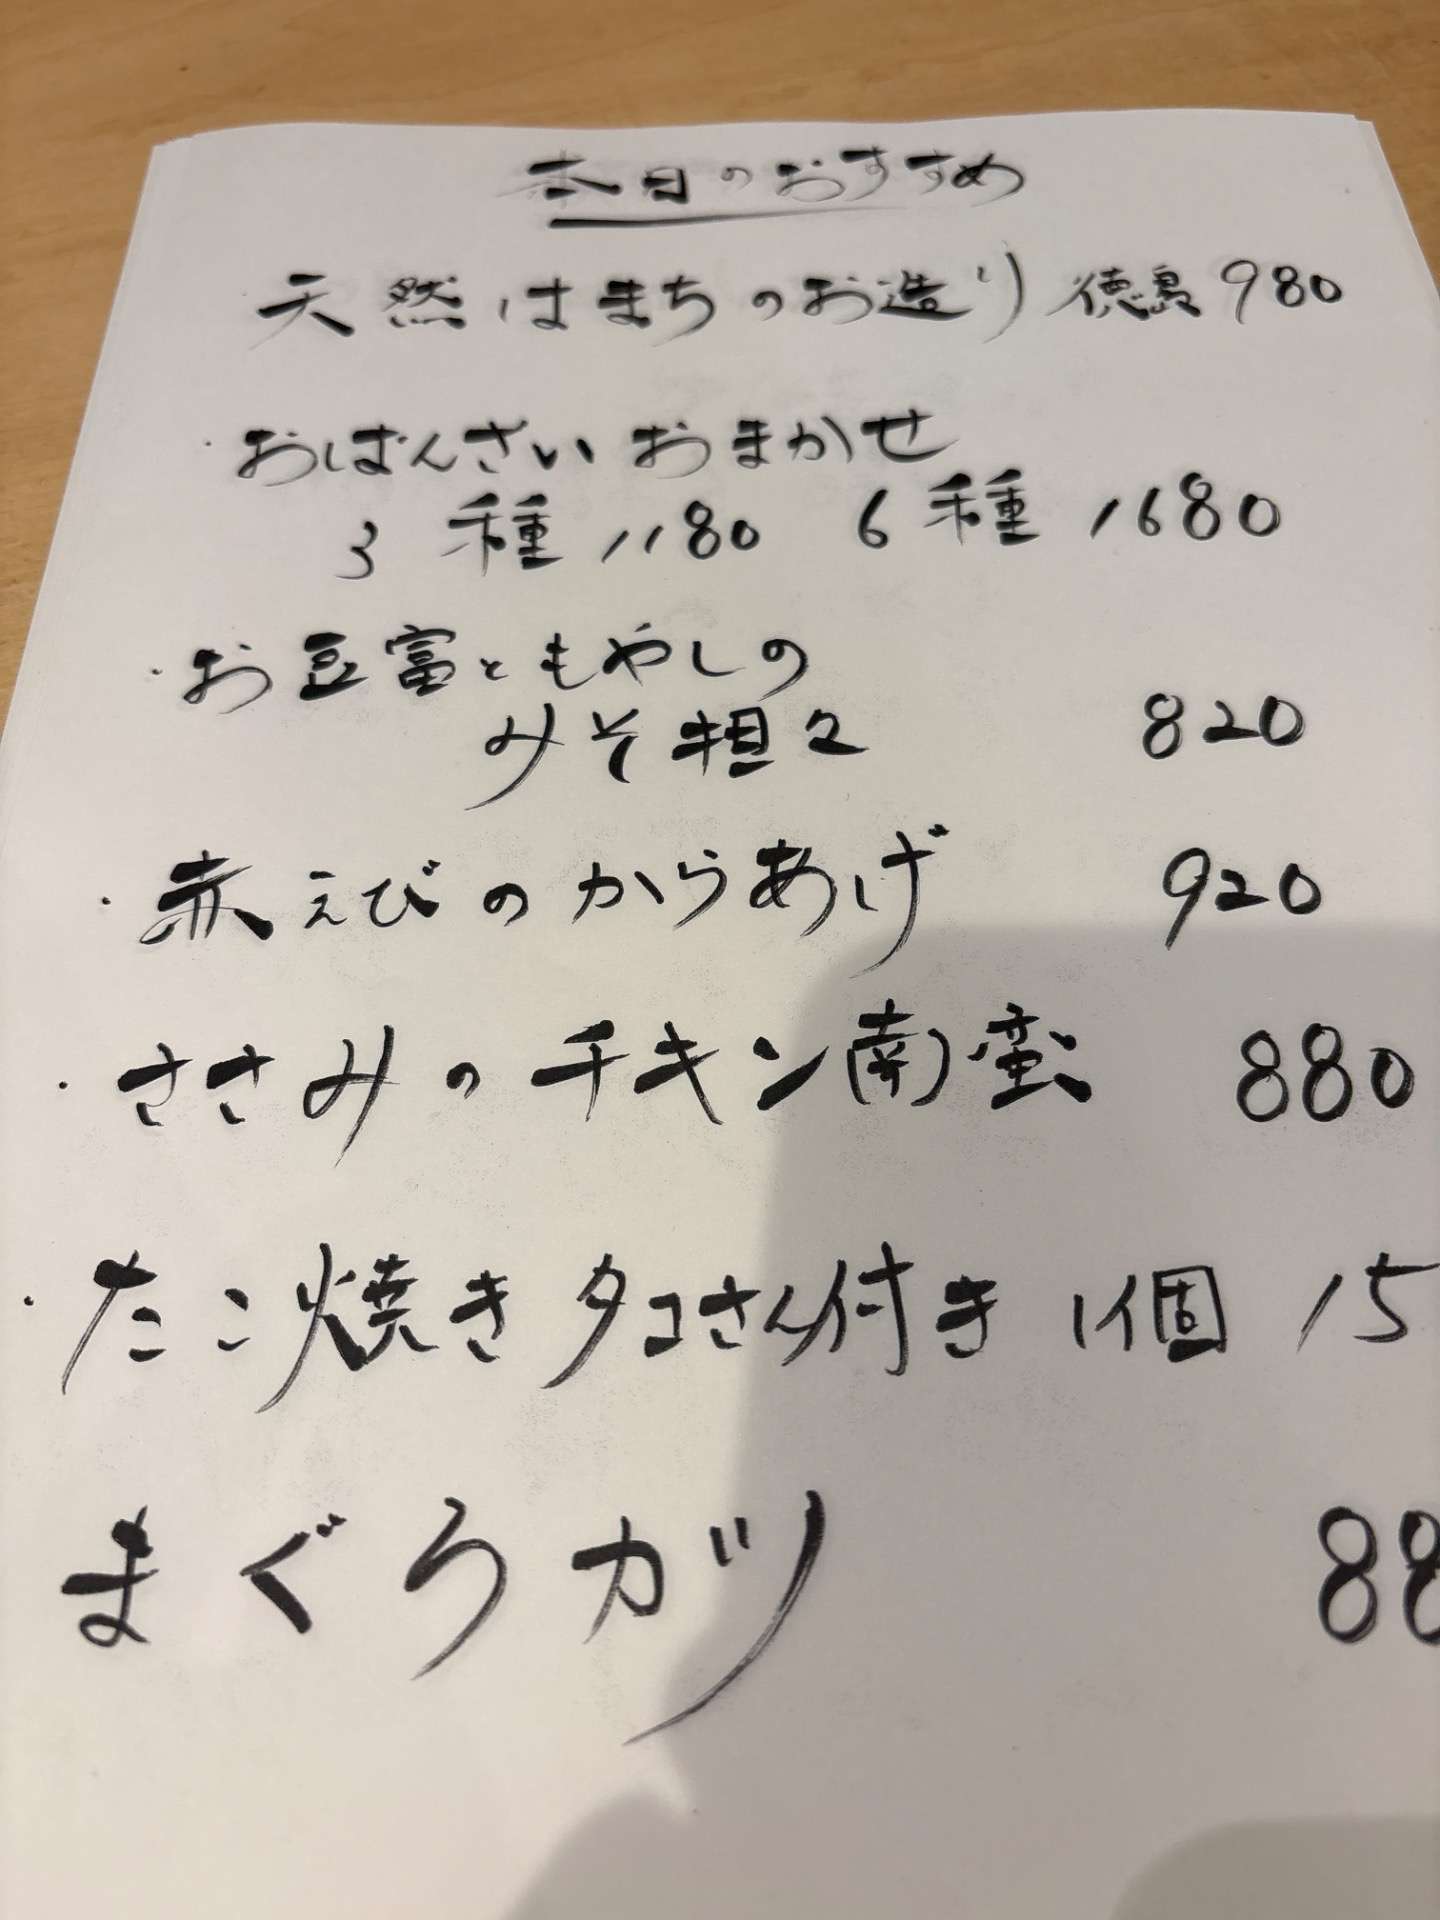 本日のおすすめ
天然はまちのお造り 徳島 980
・おばんざいおまかせ
3種 1180 6種 1680
・お豆富ともやしの
みそ担々 820
・赤えびのからあげ 920
・ささみのチキン南蛮 880
・たこ焼きタコさん付き 1個 15
まぐろカツ 88